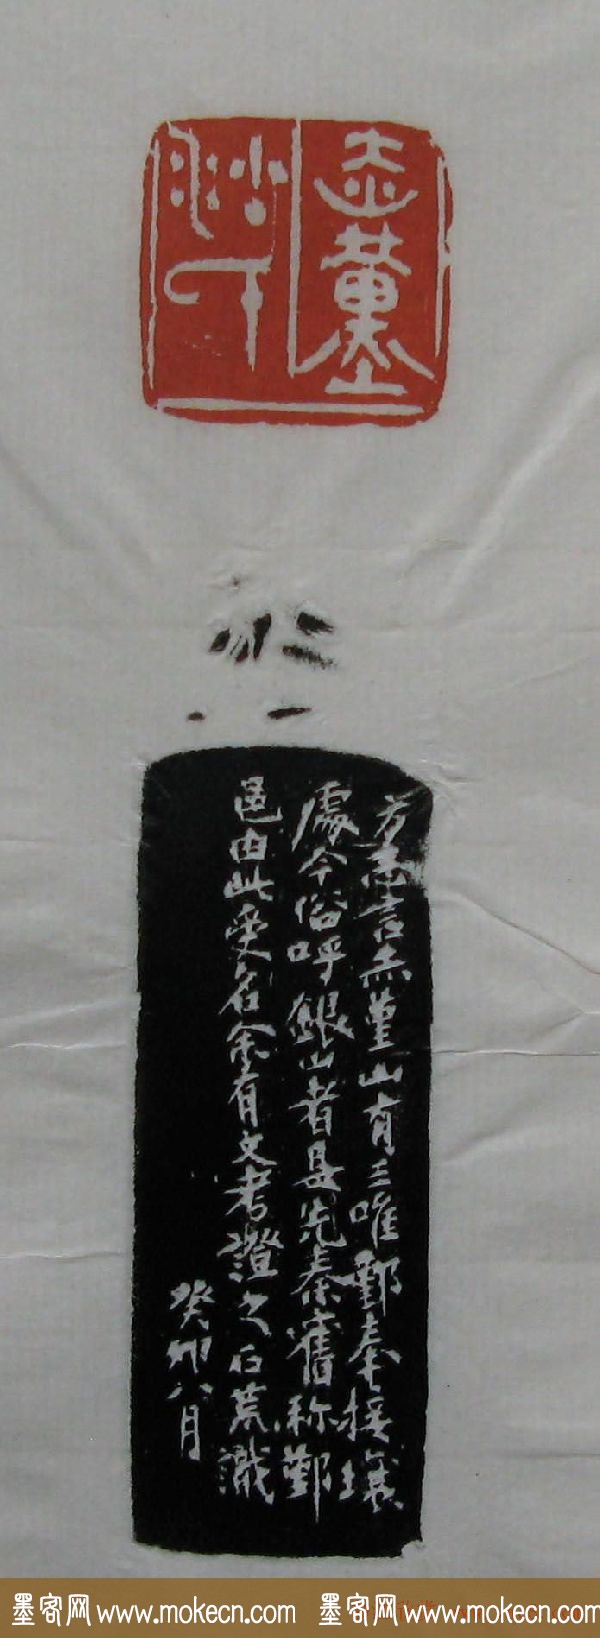 赤堇山
沙丁
方志言赤堇山有三唯鄞奉接壤
處今俗呼銀山者是先秦舊称鄞
邑由此受名余有文考證之石荒識
癸卯八月
墨客网 www.mokecn.com 墨客网 www.mokecn.com